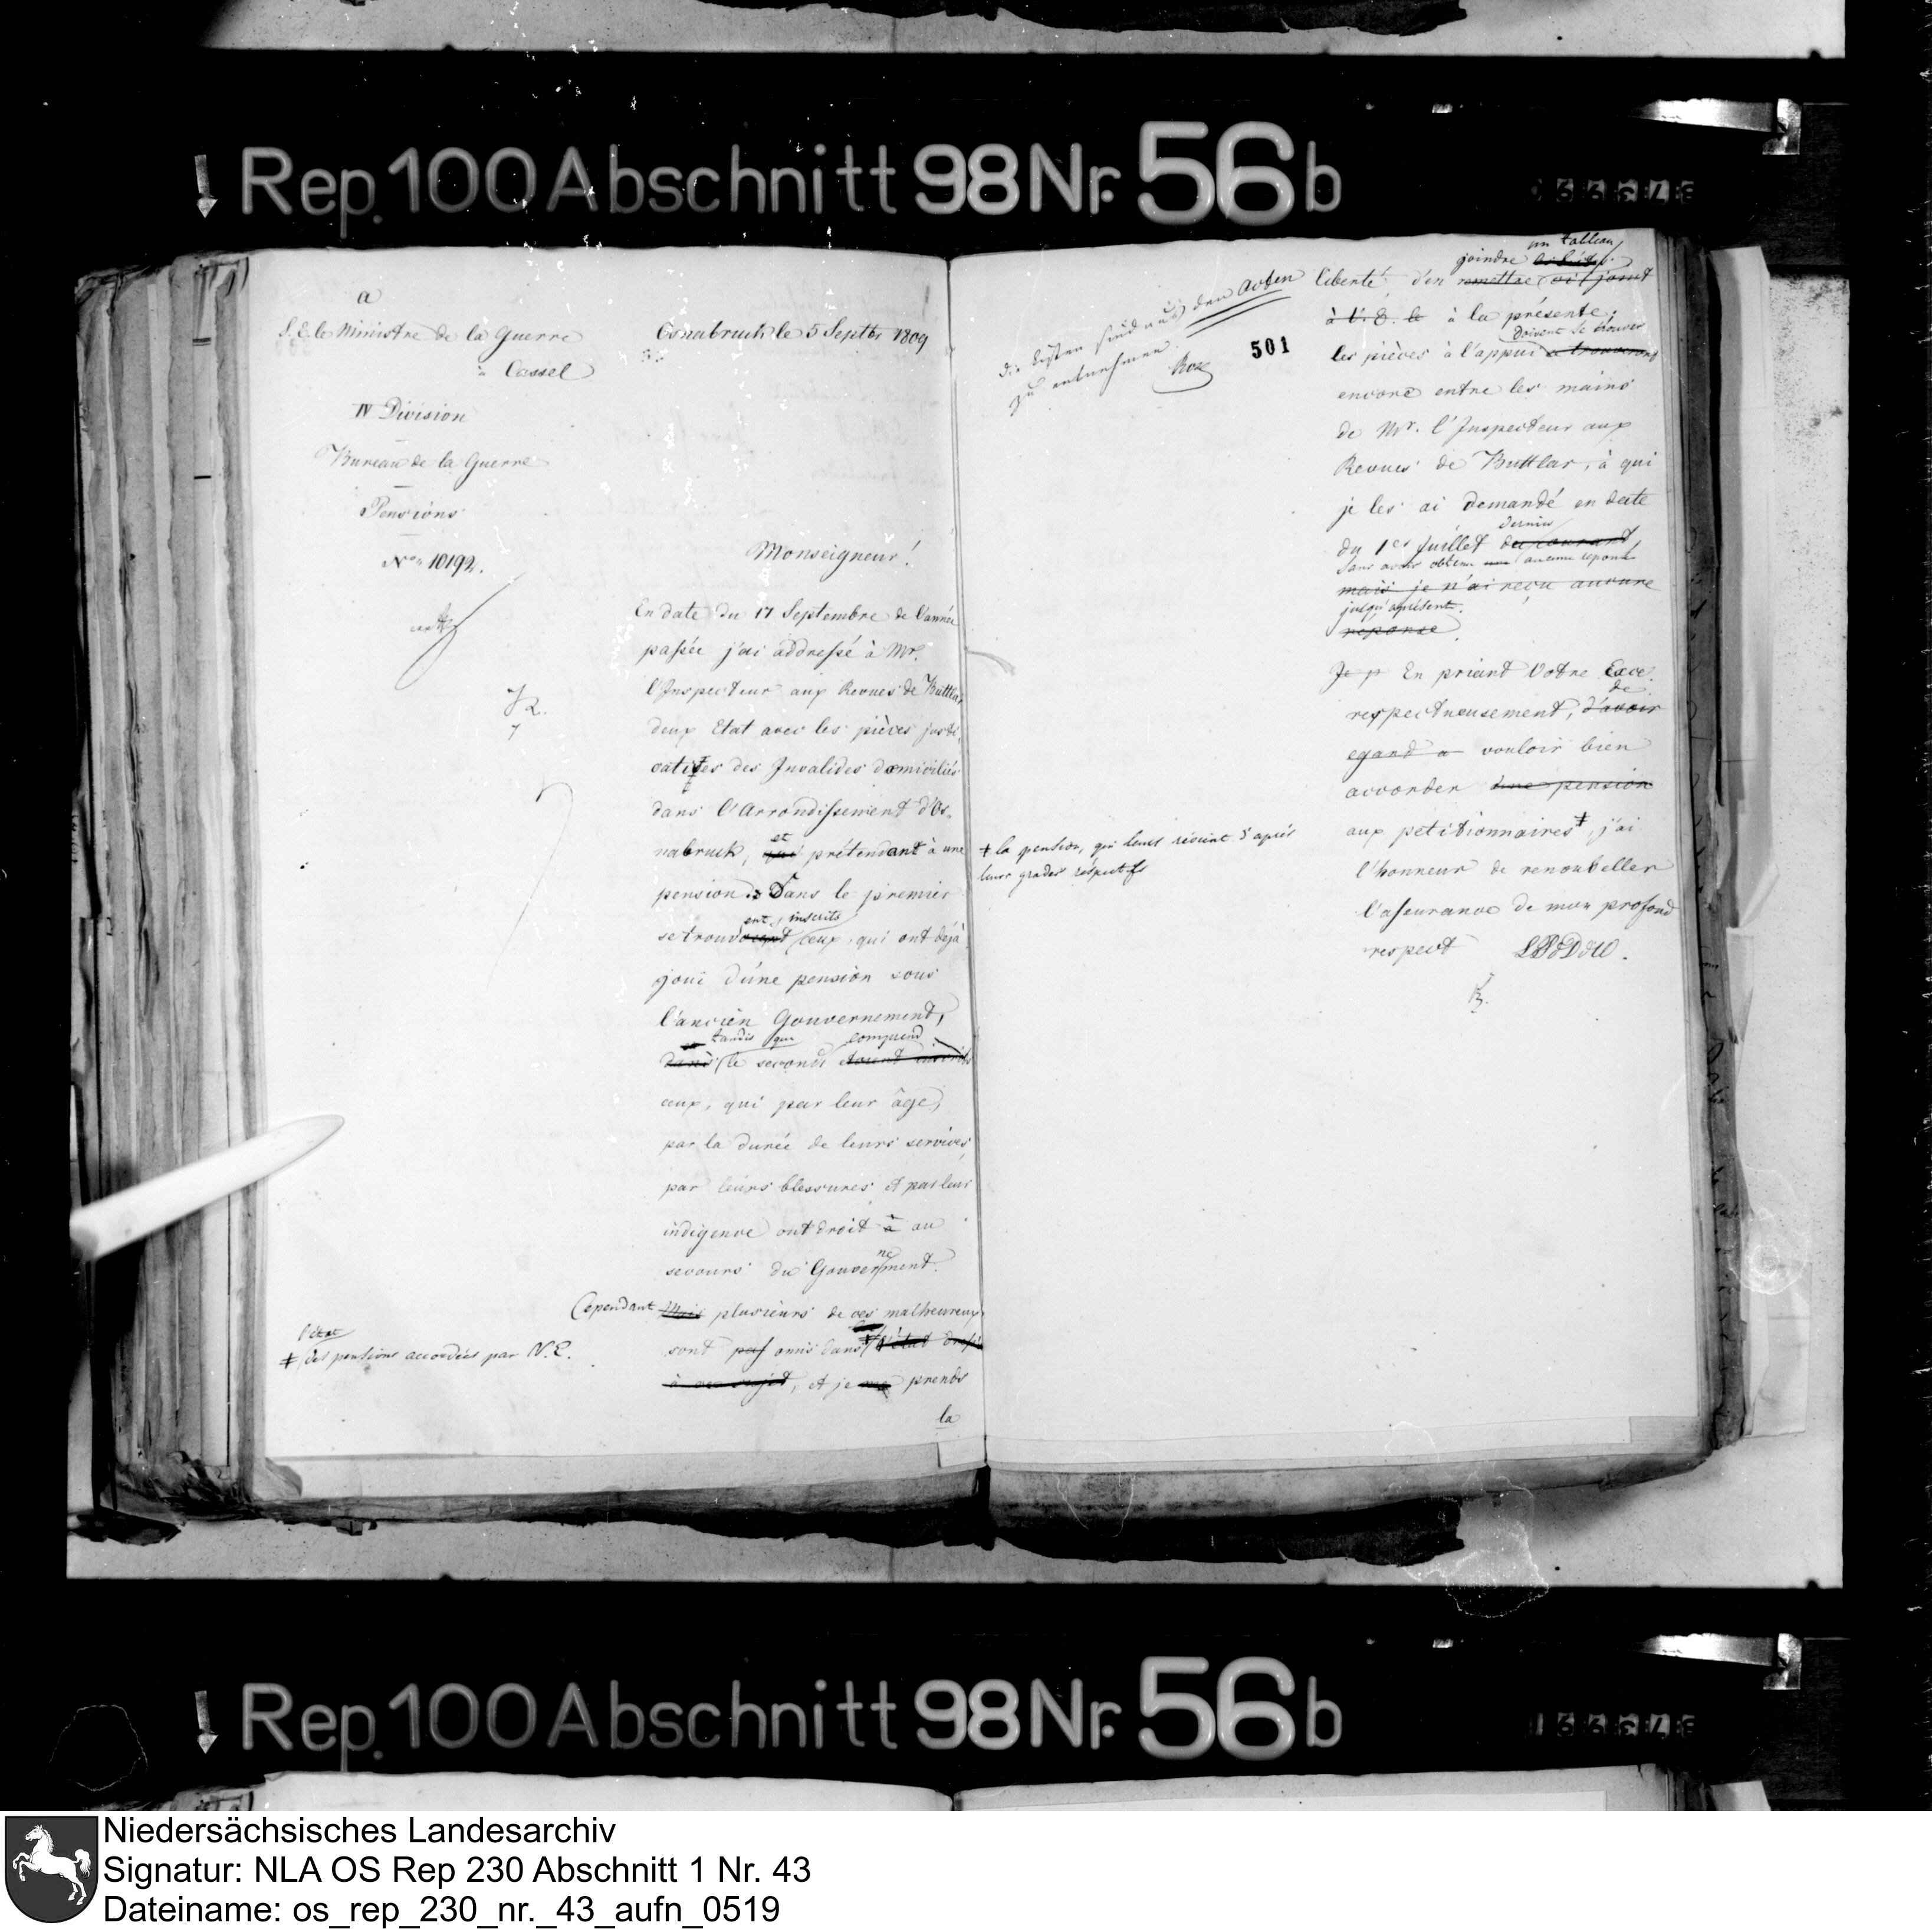 Rep. 100 Abschnitt 98 Nr. 56 b
a
S. E. le Ministre de la Guerre
à Cassel
IV Division
Bureau de la Guerre
Pensions
No. 10192.
Osnabruck le 5 Septbr 1809
Monseigneur!
En date du 17 Septembre de l'année
passée j'ai addressé à Mr.
l'Inspecteur aux Revues de Buttlar
deux Etat avec les pièces justi-
catives des Invalides domiciliés
dans l'Arrondissement d'Os-
et
nabruck, qui prétendant à une
pension. Dans le premier
ent, inscrits
se trouv ceux, qui ont déjà
joui d'une pension sous
l'ancien Gouvernement,
tandis que comprend
dans le second étoient inscrits
ceux, qui par leur âge,
par la durée de leurs services,
par leurs blessures et par leur
indigence ont droit à au
ne
secours du Gouverment.
Cependant Mais plusieurs de ces malheureux
sont pas omis dans l'état dressé
à ce sujet, et je me prends
la
l'état
‡ des pensions accordées par V. E.
501
die Listen sind aus den Acten
zu entnehmen.
un tableau
joindre
liberté d'en remettre ci joint
à V. E. le à la présente.
doivent se trouver
les pièces à l'appui se trouvent
encore entre les mains
de Mr. l'Inspecteur aux
Revues de Buttlar, à qui
je les ai demandé en date
dernier
du 1er Juillet du courant
sans avoir obtenu aucune reponse
mais je n'ai reçu aucune
jusqu'aprésent.
reponse.
Je p En priant Votre Exce.
de
respectueusement, d'avoir
egard a vouloir bien
accorder une pension
aux petitionnaires‡, j'ai
l'honneur de renouveller
l'assurance de mon profond
respect
‡ la pension, qui leurs revient d'après
leurs grades réspectifs
Rep. 100 Abschnitt 98 Nr. 56 b
Niedersächsisches Landesarchiv
Signatur: NLA OS Rep 230 Abschnitt 1 Nr. 43
Dateiname: os_rep_230_nr._43_aufn_0519